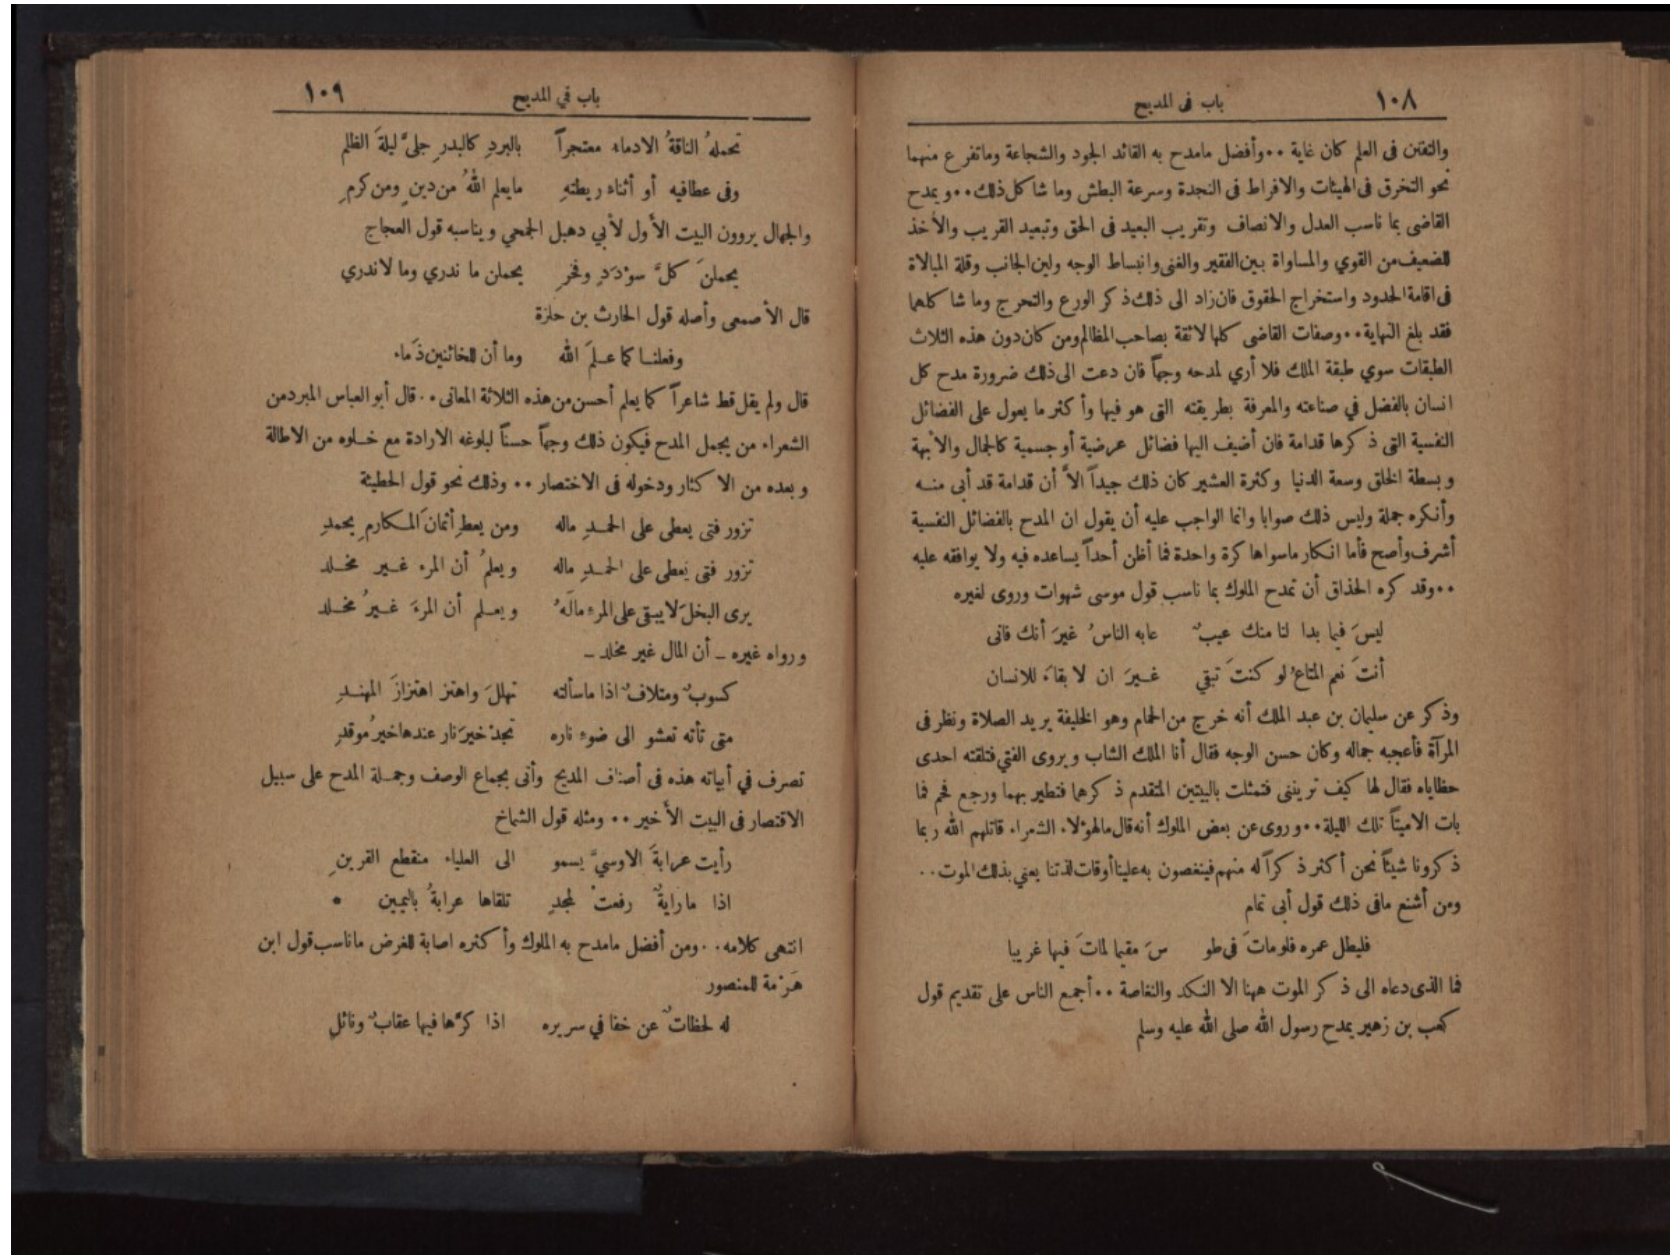 ١٠٨
باب فى المديح
والتفنن فى العلم كان غاية ٠٠ وأفضل مامدح به القائد الجود والشجاعة وماتفرع منهما
نحو التخرق فى الهيئات والافراط فى النجدة وسرعة البطش وما شاكل ذلك ٠٠ ويمدح
القاضى بما ناسب العدل والانصاف وتقريب البعيد فى الحق وتبعيد القريب والأخذ
للضعيف من القوي والمساواة بين الفقير والغنى وانبساط الوجه ولين الجانب وقلة المبالاة
فى اقامة الحدود واستخراج الحقوق فان زاد الى ذلك ذكر الورع والتحرج وما شاكلهما
فقد بلغ النهاية ٠٠ وصفات القاضى كلها لائقة بصاحب المظالم ومن كان دون هذه الثلاث
الطبقات سوي طبقة الملك فلا أري لمدحه وجهاً فان دعت الى ذلك ضرورة مدح كل
انسان بالفضل في صناعته والمعرفة بطريقته التى هو فيها وأكثر ما يعول على الفضائل
النفسية التى ذكرها قدامة فان أضيف اليها فضائل عرضية أو جسمية كالجمال والأبهة
وبسطة الخلق وسعة الدنيا وكثرة العشير كان ذلك جيداً الاَّ أن قدامة قد أبى منه
وأنكره جملة وليس ذلك صوابا وانما الواجب عليه أن يقول ان المدح بالفضائل النفسية
أشرف وأصح فأما انكار ماسواها كرة واحدة فما أظن أحداً يساعده فيه ولا يوافقه عليه
٠٠ وقد كره الحذاق أن تمدح الملوك بما ناسب قول موسى شهوات وروى لغيره
ليسَ فيما بدا لنا منك عيبٌ عابه الناسُ غيرَ أنك فانى
أنتَ نعم المتاعُ لو كنتَ تبقي غيرَ ان لا بقاءَ للانسان
وذكر عن سليمان بن عبد الملك أنه خرج من الحمام وهو الخليفة يريد الصلاة ونظر فى
المرآة فأعجبه جماله وكان حسن الوجه فقال أنا الملك الشاب ويروى الفتي فتلقته احدى
حظاياه فقال لها كيف ترينى فتمثلت بالبيتين المتقدم ذكرهما فتطير بهما ورجع فحم فما
بات الاميتاً تلك الليلة ٠٠ وروى عن بعض الملوك أنه قال مالهؤلاء الشعراء قاتلهم الله ربما
ذكرونا شيئاً نحن أكثر ذكراً له منهم فينغصون به علينا أوقات لذتنا يعني بذلك الموت ٠٠
ومن أشنع مافى ذلك قول أبى تمام
فليطل عمره فلو ماتَ فى طو سَ مقيما لماتَ فيها غريبا
فما الذى دعاه الى ذكر الموت ههنا الا النكد والنغاصة ٠٠ أجمع الناس على تقديم قول
كعب بن زهير يمدح رسول الله صلى الله عليه وسلم
باب في المديح
١٠٩
تحملهُ الناقةُ الادماء معتجراً بالبردِ كالبدرِ جلىَّ ليلةَ الظلم
وفى عطافيه أو أثناء ريطتهِ مايعلم اللهُ من دينٍ ومن كرمِ
والجهال يروون البيت الأول لأبي دهبل الجمحي ويناسبه قول العجاج
يحملنَ كلَّ سوْدَدٍ وفخرِ يحملن ما ندري وما لاندري
قال الأصمعى وأصله قول الحارث بن حلزة
وفعلنا كما علمَ الله وما أن للخائنين ذَماء
قال ولم يقل قط شاعراً كما يعلم أحسن من هذه الثلاثة المعانى ٠٠ قال أبو العباس المبرد من
الشعراء من يجمل المدح فيكون ذلك وجهاً حسناً لبلوغه الارادة مع خلوه من الاطالة
وبعده من الاكثار ودخوله فى الاختصار ٠٠ وذلك نحو قول الحطيئة
تزور فتى يعطى على الحمدِ ماله ومن يعطِ أثمانَ المكارمِ يحمدِ
تزور فتى يعطى على الحمدِ ماله ويعلمُ أن المرء غير مخلد
يرى البخلَ لا يبقى على المرءِ مالَهُ ويعلم أن المرءَ غيرُ مخلد
ورواه غيره ــ أن المال غير مخلد ــ
كسوبٌ ومتلافٌ اذا ماسألته تهللَ واهتز اهتزازَ المهندِ
متى تأته تعشو الى ضوءِ ناره تجدْ خيرَ نار عندها خيرُ مُوقدِ
تصرف في أبياته هذه فى أصناف المديح وأنى بجماع الوصف وجملة المدح على سبيل
الاقتصار فى البيت الأخير ٠٠ ومثله قول الشماخ
رأيت عرابةَ الاوسيَّ يسمو الى العلياء منقطع القرينِ
اذا ما رايةٌ رفعتْ لمجدٍ تلقاها عرابةُ باليمين *
انتهى كلامه ٠٠ ومن أفضل مامدح به الملوك وأكثره اصابة للغرض ماناسب قول ابن
هَرْمة للمنصور
له لحظاتٌ عن خفا في سريره اذا كرَّها فيها عقابٌ ونائلِ